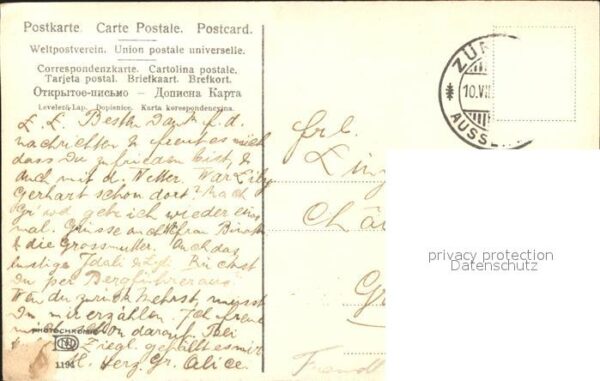 Postkarte. Carte Postale. Postcard.
Weltpostverein. Union postale universelle.
Correspondenzkarte. Cartolina postale.
Tarjeta postal. Briefkaart. Brefkort.
Открытое-письмо — Дописна Карта
Levelező-Lap. Dopisnice. Karta korespondencyjna.
ZÜR
10.VII
AUSSE
L. L. Besten Dank f. d.
nachrichten & freut es mich
dass du zufrieden bist, &
auch mit d. Wetter. War Lily
Gerhart schon dort? Nach
geh ich wieder ein
mal. Grüsse auch Frau
& die Grossmutter. Auch das
lustige Idali &
du per Bergführer aus.
Wen du zurück kehrst, musst
du mir erzählen. Ich freue
mich schon darauf. Bei
Ziegl. gefällt es mir
H. herz. Gr. Alice.
Frl.
Lin
Chä
G
PHOTOCHROMIE
1194
privacy protection
Datenschutz